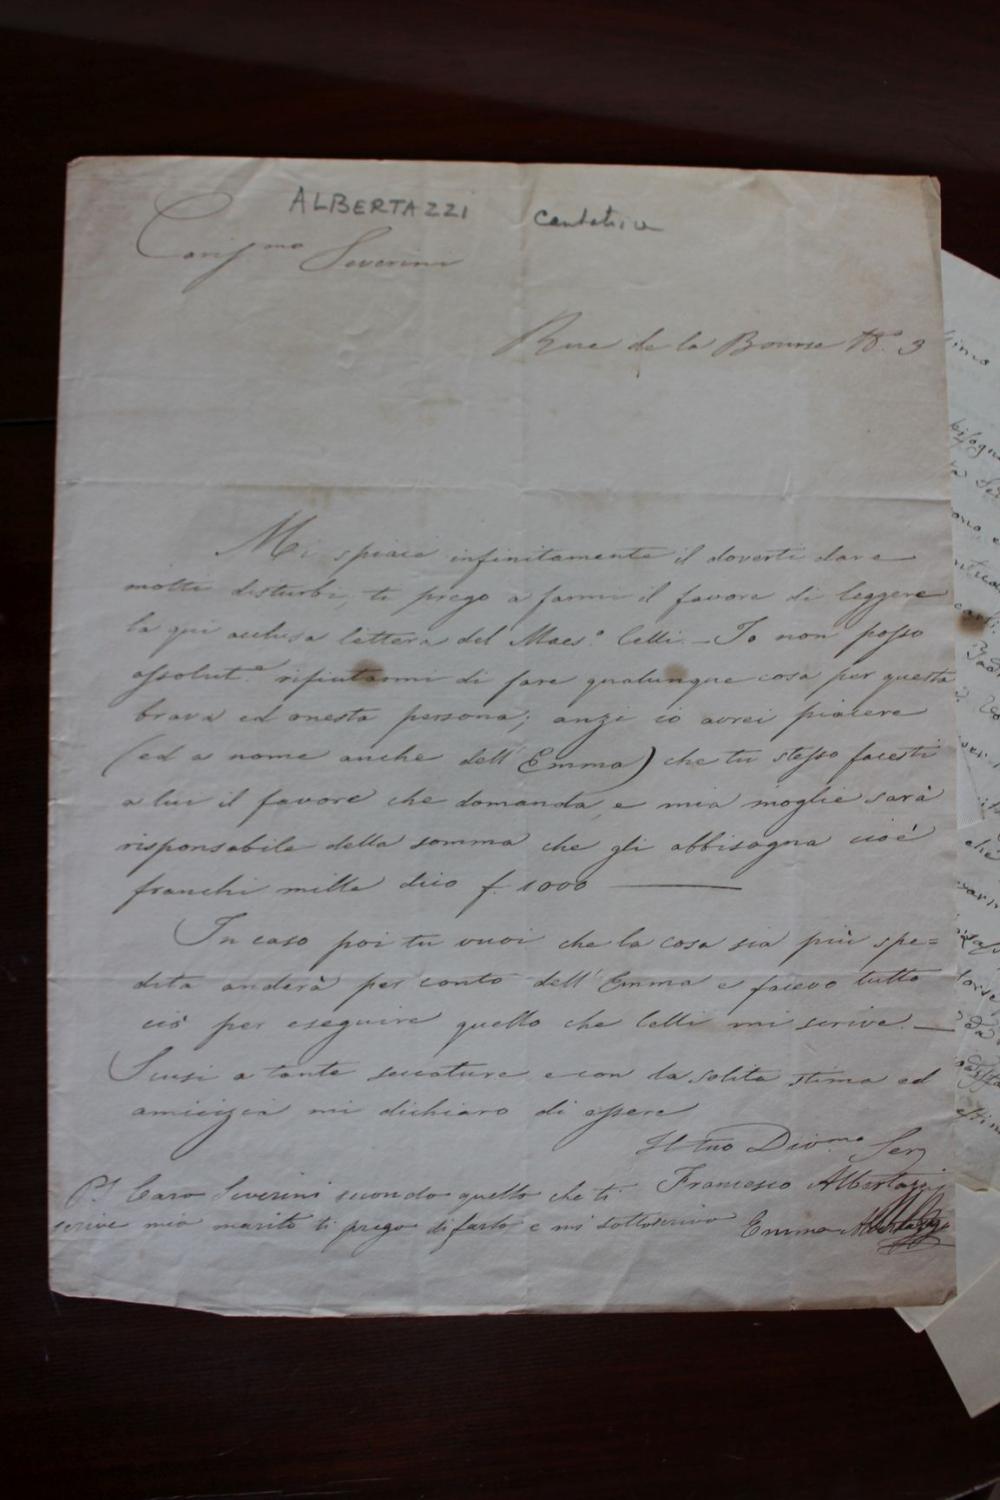 ALBERTAZZI cantatrice
Cariss.mo Severini
Rue de la Bourse N.° 3
Mi spiace infinitamente il doverti dare
molti disturbi, ti prego a farmi il favore di leggere
la qui acclusa lettera del Maes.° Celli. - Io non posso
assolut.e rifiutarmi di fare qualunque cosa per questa
brava ed onesta persona; anzi io avrei piacere
(ed a nome anche dell'Emma) che tu stesso facesti
a lui il favore che domanda, e mia moglie sarà
risponsabile della somma che gli abbisogna cioè
franchi mille dico f. 1000 ———
In caso poi tu vuoi che la cosa sia più spe=
dita anderà per conto dell'Emma e facevo tutto
ciò per eseguire quello che Celli mi scrive. —
Scusi a tante seccature e con la solita stima ed
amicizia mi dichiaro di essere
Il tuo Divo.mo Ser
Francesco Albertazzi
P.S Caro Severini secondo quello che ti
scrive mio marito ti prego di farlo e mi sottoscrivo Emma Albertazzi